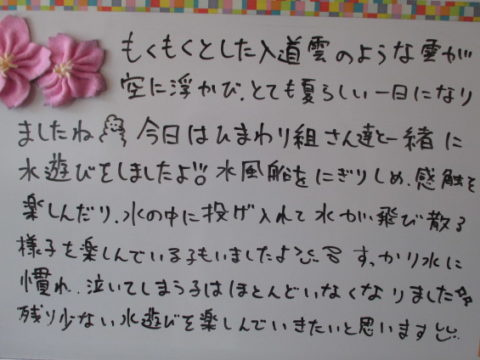 もくもくとした入道雲のような雲が
空に浮かび、とても夏らしい一日になり
ましたね 今日はひまわり組さん達と一緒に
水遊びをしましたよ!! 水風船をにぎりしめ、感触を
楽しんだり、水の中に投げ入れて水が飛び散る
様子を楽しんでいる子もいましたよ すっかり水に
慣れ、泣いてしまう子はほとんどいなくなりました
残り少ない水遊びを楽しんでいきたいと思います